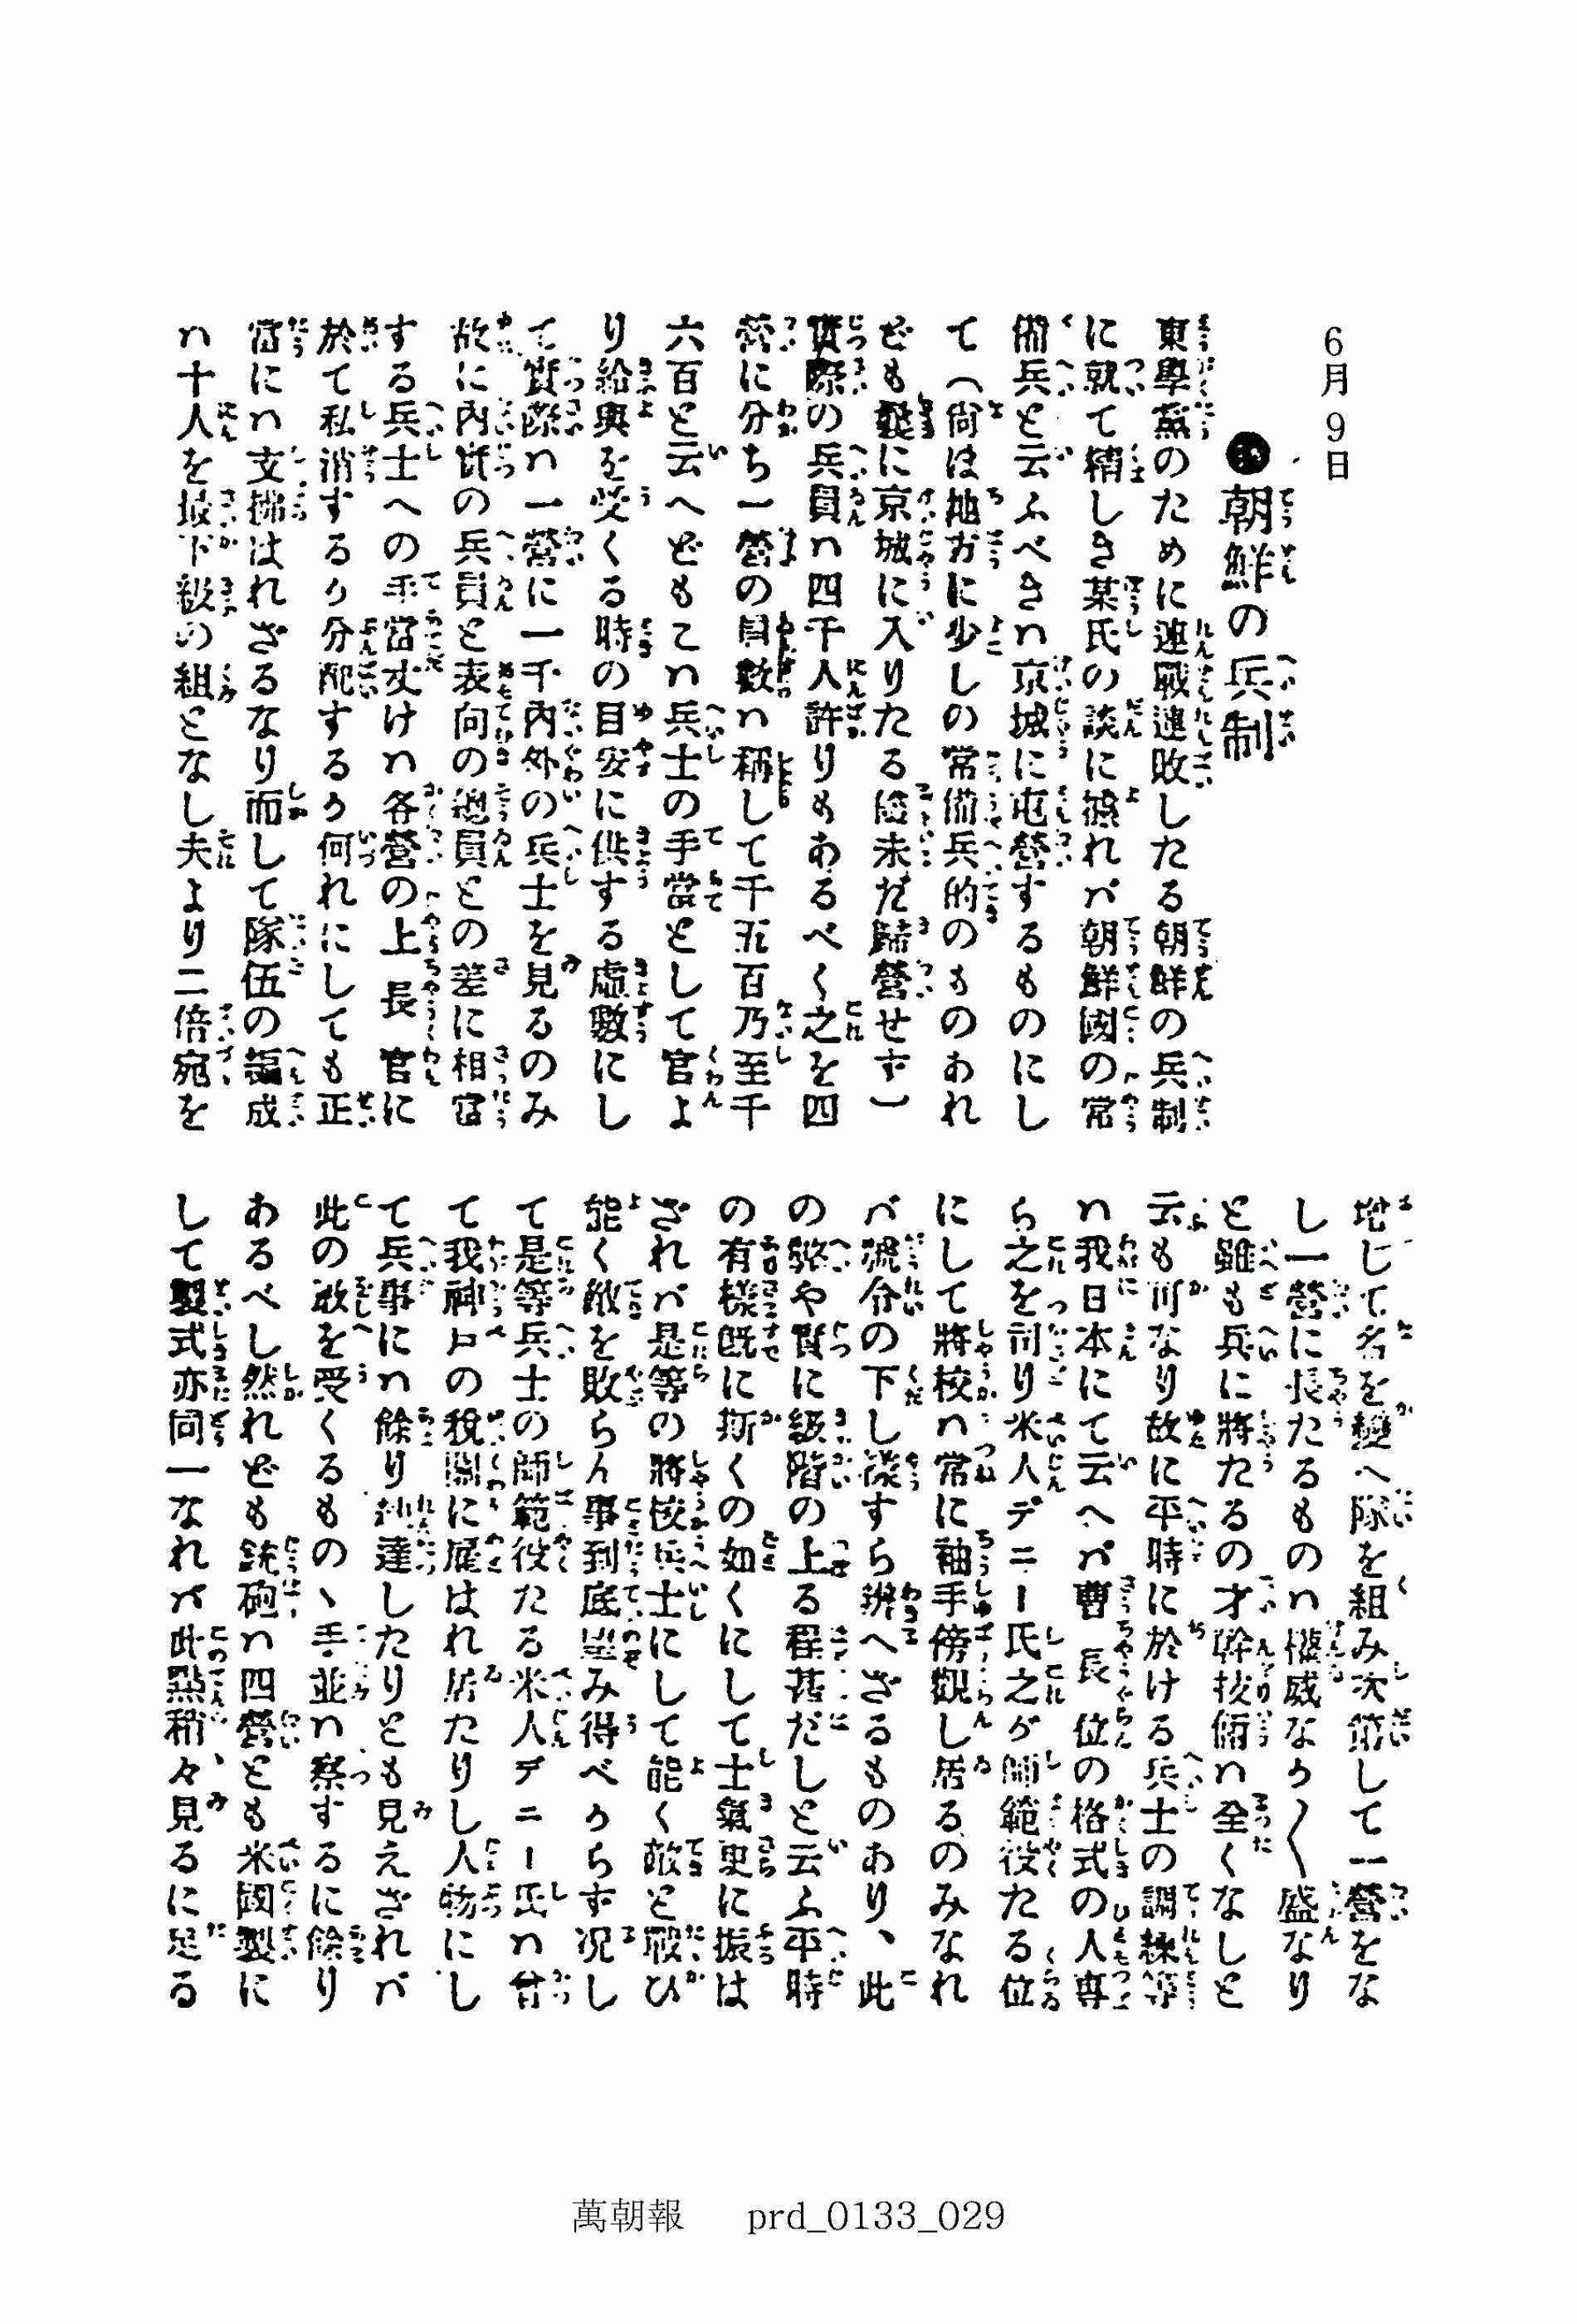 6月9日
●朝鮮の兵制
東學黨のために連戰連敗したる朝鮮の兵制
に就て精しき某氏の談に據れバ朝鮮國の常
備兵と云ふべきハ京城に屯營するものにし
て(尚ほ地方に少しの常備兵的のものあれ
ども義に京城に入りたる儘未だ歸營せず)
實際の兵員ハ四千人許りもあるべく之を四
營に分ち一營の員數ハ稱して千五百乃至千
六百と云へどもこハ兵士の手當として官よ
り給與を受くる時の目安に供する虛數にし
て實際ハ一營に一千內外の兵士を見るのみ
故に內實の兵員と表向の總員との差に相當
する兵士への手當丈けハ各營の上長官に
於て私消するか分配するか何れにしても正
當にハ支拂はれざるなり而して隊伍の編成
ハ十人を最下級の組となし夫より二倍宛を
增して名を變へ隊を組み次第して一營をな
し一營に長たるものハ權威なか〱盛なり
と雖も兵に將たるの才幹技倆ハ全くなしと
云も可なり故に平時に於ける兵士の調練等
ハ我日本にて云へバ曹長位の格式の人專
ら之を司り米人デニー氏之が師範役たる位
にして將校ハ常に袖手傍觀し居るのみなれ
バ號令の下し樣すら辨へざるものあり、此
の弊や實に級階の上る程甚だしと云ふ平時
の有樣既に斯くの如くにして士氣更に振は
ざれバ是等の將校兵士にして能く敵と戰ひ
能く敵を敗らん事到底望み得べからず况し
て是等兵士の師範役たる米人デニー氏ハ曾
て我神戶の稅關に雇はれ居たりし人物にし
て兵事にハ餘り練達したりとも見えざれバ
此の敎を受くるものヽ手並ハ察するに餘り
あるべし然れども銃砲ハ四營とも米國製に
して製式亦同一なれバ此點稍々見るに足る
萬朝報 prd_0133_029